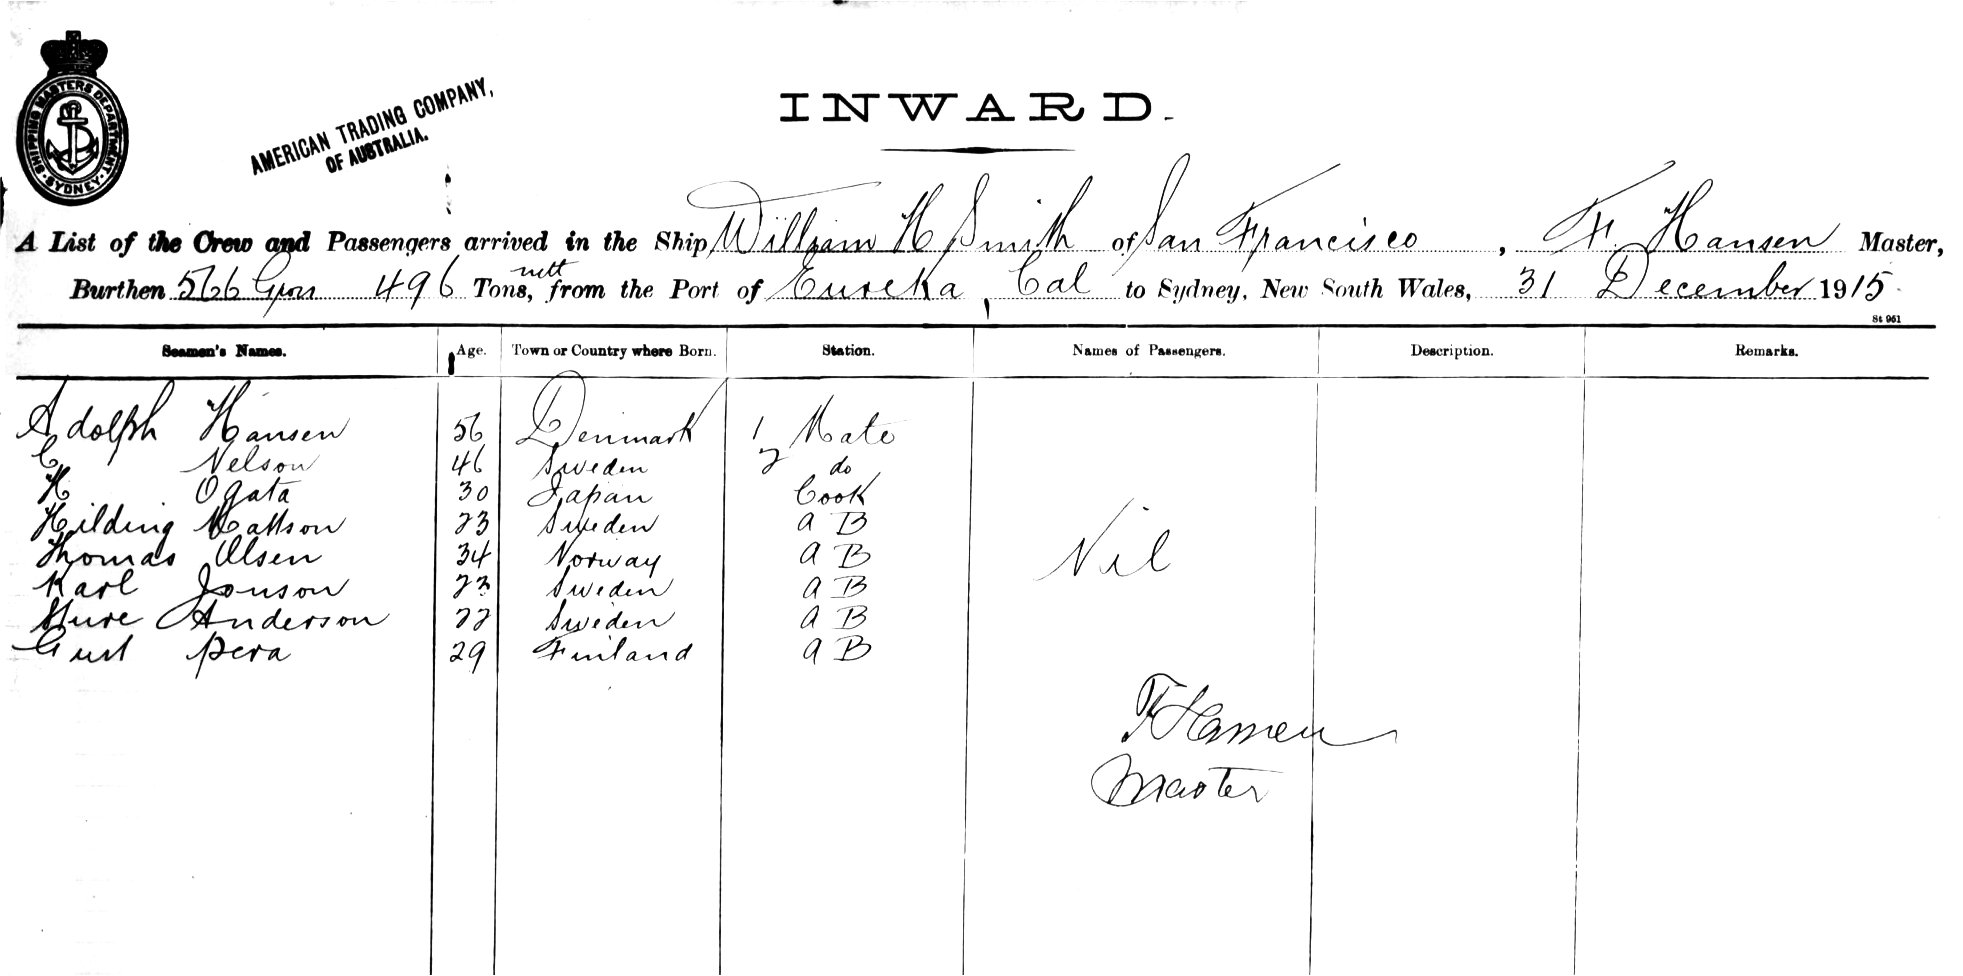 SHIPPING MASTERS DEPARTMENT · SYDNEY ·
AMERICAN TRADING COMPANY,
OF AUSTRALIA.
INWARD.
A List of the Crew and Passengers arrived in the Ship William H Smith of San Francisco, F. Hansen Master,
Burthen 566 Gross 496 Tons, nett from the Port of Eureka, Cal to Sydney, New South Wales, 31 December 1915
St 961
Seamen's Names. Age. Town or Country where Born. Station. Names of Passengers. Description. Remarks.
Adolph Hansen 56 Denmark 1 Mate
C Nelson 46 Sweden 2 do
H Ogata 30 Japan Cook
Hilding Mattson 23 Sweden A B
Thomas Olsen 34 Norway A B
Nil
Karl Jonson 23 Sweden A B
Sture Anderson 22 Sweden A B
Gust Pera 29 Finland A B
F Hansen
Master